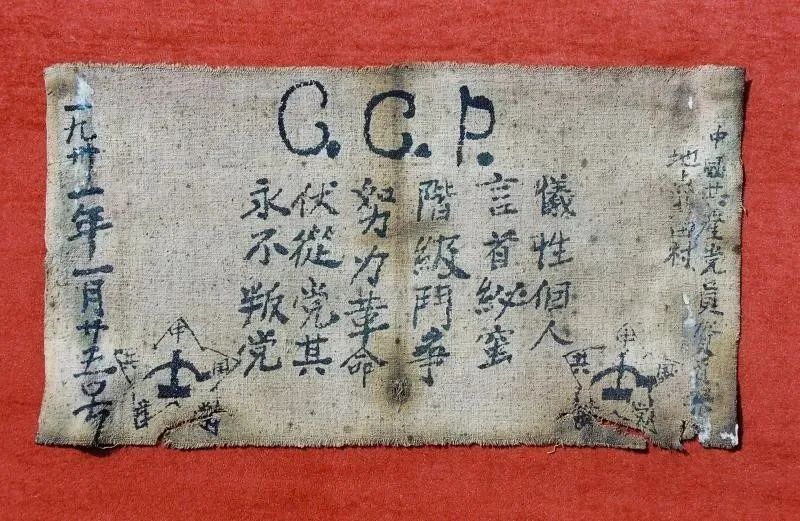 中國共產党員
地点北田村
C.C.P.
犧牲個人
言首秘蜜
階級鬥爭
努力革命
伏從党其
永不叛党
一九卅一年一月廿五号
中國共產黨
中國共產黨